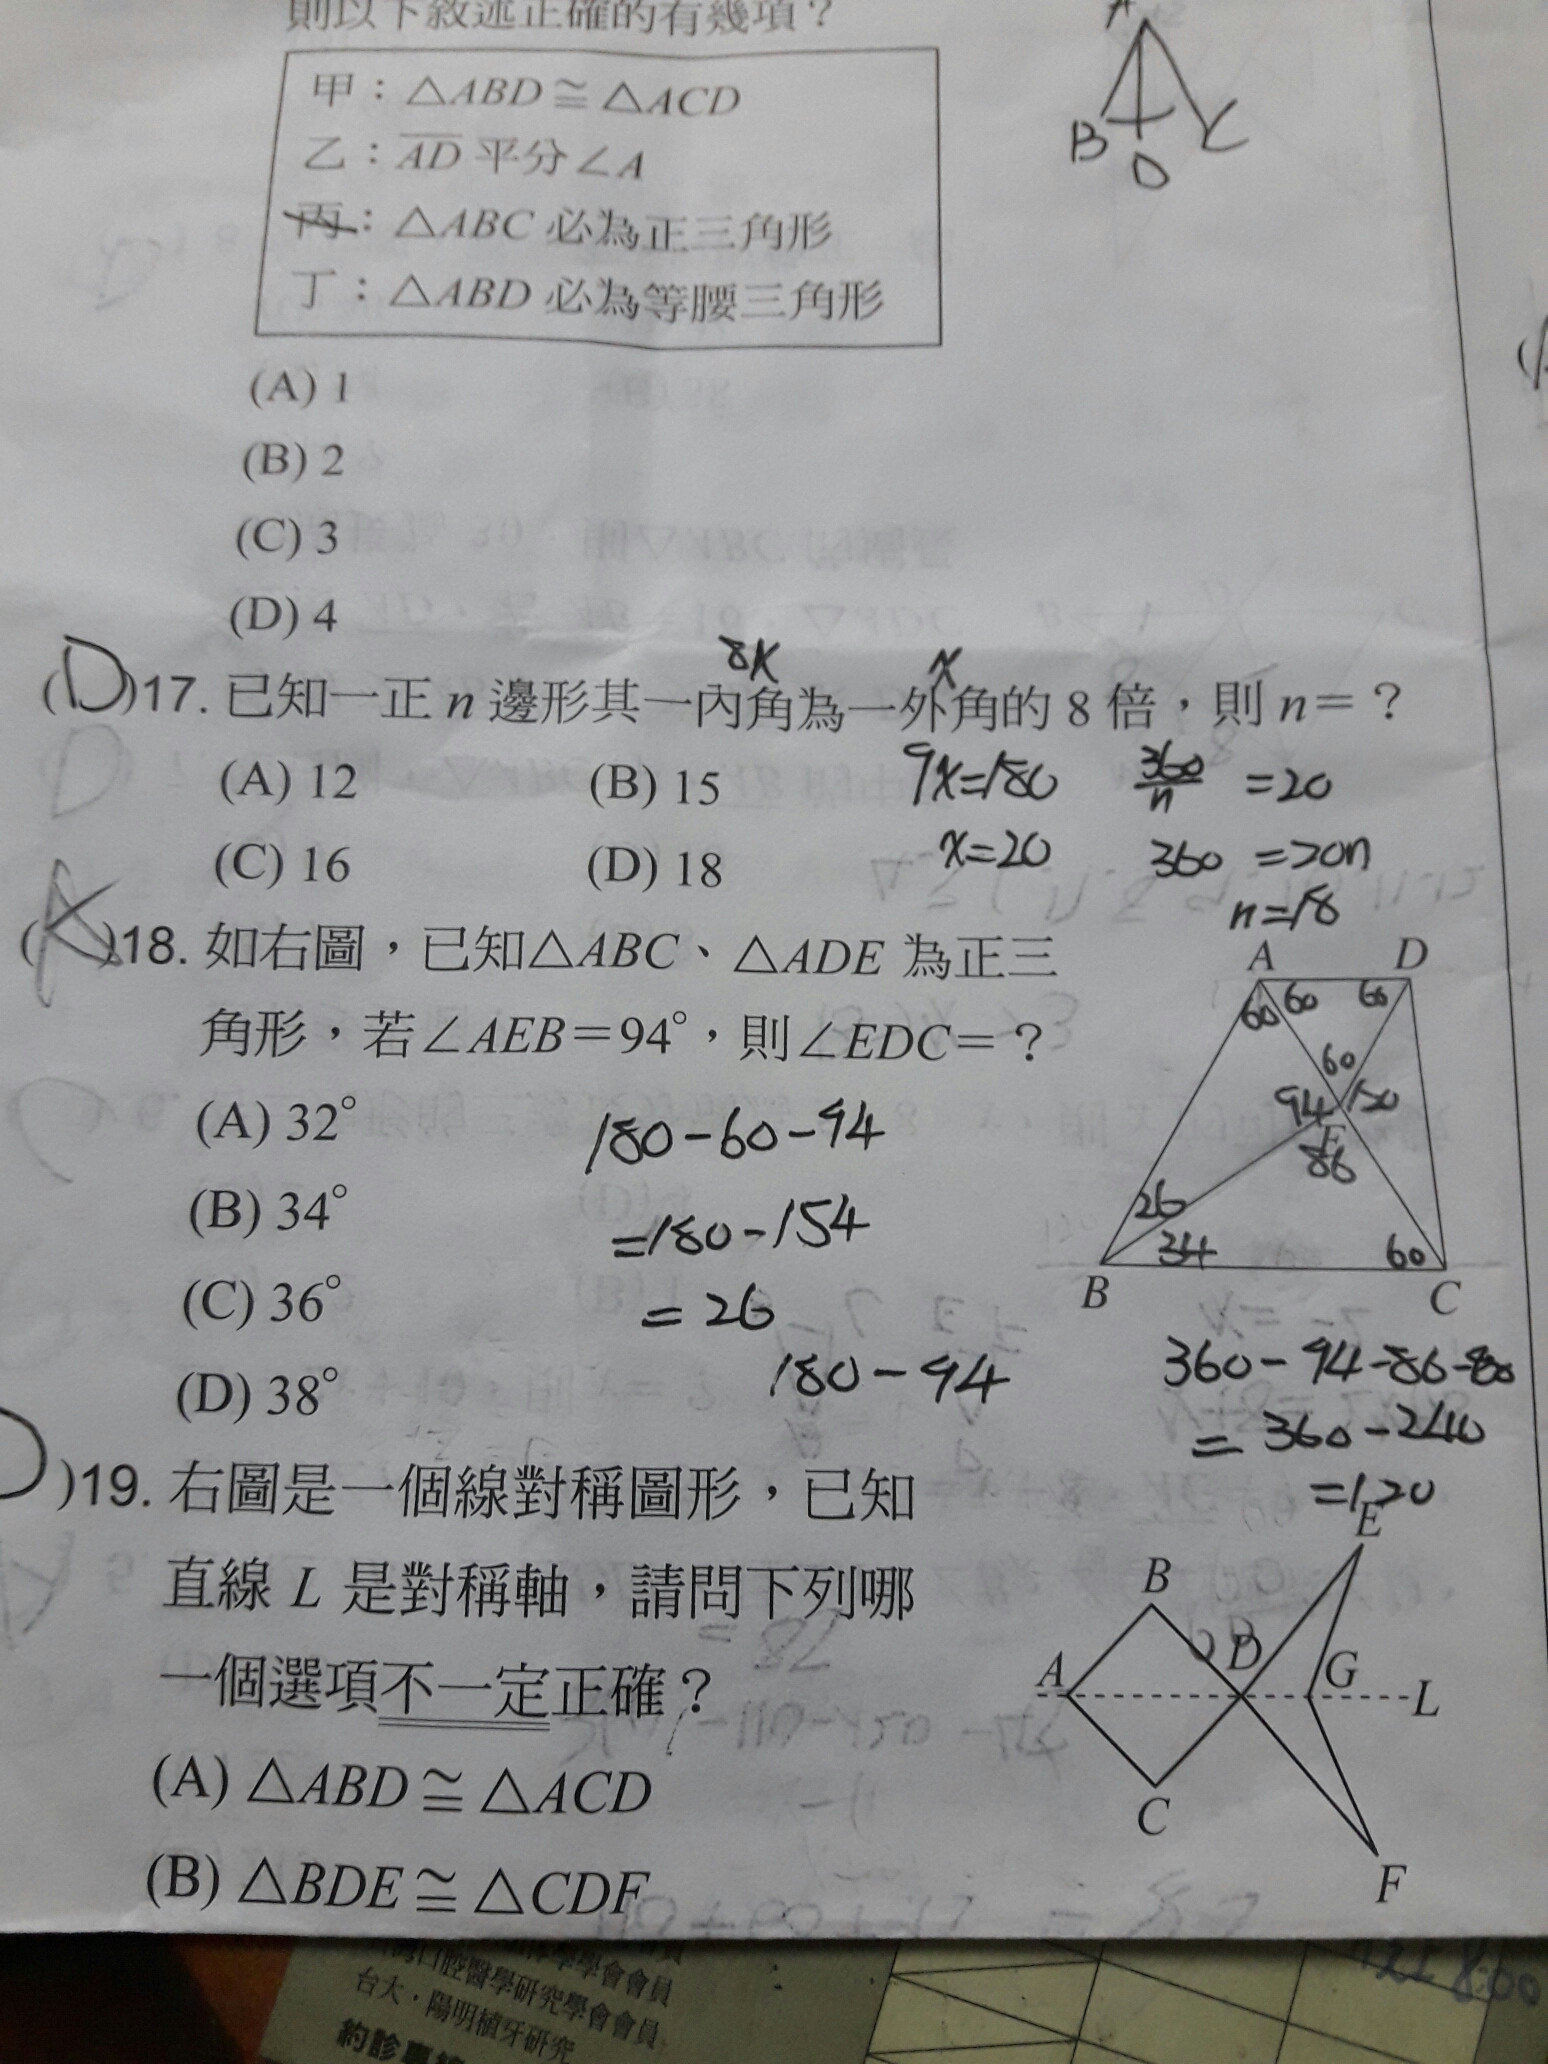 則以下敘述正確的有幾項？
甲：△ABD≅△ACD
乙：AD 平分∠A
丙：△ABC 必為正三角形
丁：△ABD 必為等腰三角形
A
B D C
(A) 1
(B) 2
(C) 3
(D) 4
8x x
(D)17. 已知一正 n 邊形其一內角為一外角的 8 倍，則 n=？
(A) 12 (B) 15
(C) 16 (D) 18
9x=180
x=20
360/n =20
360 =20n
n=18
(A)18. 如右圖，已知△ABC、△ADE 為正三
角形，若∠AEB=94°，則∠EDC=？
(A) 32°
(B) 34°
(C) 36°
(D) 38°
180-60-94
=180-154
=26
180-94
A D
60 60 60
60
94 120
E
86
26
34 60
B C
360-94-86-60
=360-240
=120
)19. 右圖是一個線對稱圖形，已知
直線 L 是對稱軸，請問下列哪
一個選項不一定正確？
(A) △ABD≅△ACD
(B) △BDE≅△CDF
E
B
A D G L
C
F
口腔醫學研究學會會員
台大·陽明植牙研究
約診專線
8:00